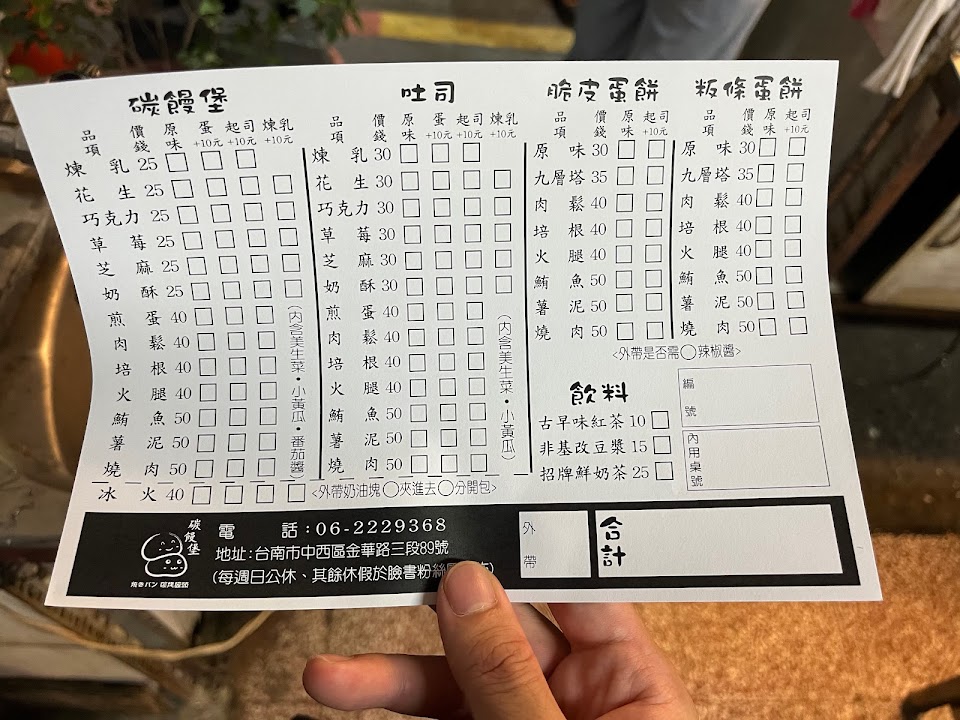 碳饅堡
品項 價錢 原味 蛋+10元 起司+10元 煉乳+10元
煉乳 25 □ □ □
花生 25 □ □ □ □
巧克力 25 □ □ □ □
草莓 25 □ □ □ □
芝麻 25 □ □ □ □
奶酥 25 □ □ □ □
煎蛋 40 □ □ □
肉鬆 40 □ □ □
培根 40 □ □ □
火腿 40 □ □ □
鮪魚 50 □ □ □
薯泥 50 □ □ □
燒肉 50 □ □ □
(內含美生菜•小黃瓜•番茄醬)
冰火 40 □ □ □ □ <外帶奶油塊○夾進去○分開包>
吐司
品項 價錢 原味 蛋+10元 起司+10元 煉乳+10元
煉乳 30 □ □ □
花生 30 □ □ □ □
巧克力 30 □ □ □ □
草莓 30 □ □ □ □
芝麻 30 □ □ □ □
奶酥 30 □ □ □ □
煎蛋 40 □ □ □
肉鬆 40 □ □ □
培根 40 □ □ □
火腿 40 □ □ □
鮪魚 50 □ □ □
薯泥 50 □ □ □
燒肉 50 □ □ □
(內含美生菜•小黃瓜)
脆皮蛋餅
品項 價錢 原味 起司+10元
原味 30 □ □
九層塔 35 □ □
肉鬆 40 □ □
培根 40 □ □
火腿 40 □ □
鮪魚 50 □ □
薯泥 50 □ □
燒肉 50 □ □
粄條蛋餅
品項 價錢 原味 起司+10元
原味 30 □ □
九層塔 35 □ □
肉鬆 40 □ □
培根 40 □ □
火腿 40 □ □
鮪魚 50 □ □
薯泥 50 □ □
燒肉 50 □ □
<外帶是否需○辣椒醬>
飲料
古早味紅茶 10 □
非基改豆漿 15 □
招牌鮮奶茶 25 □
編號
內用桌號
碳饅堡
電話:06-2229368
地址:台南市中西區金華路三段89號
(每週日公休、其餘休假於臉書粉絲
外帶
合計